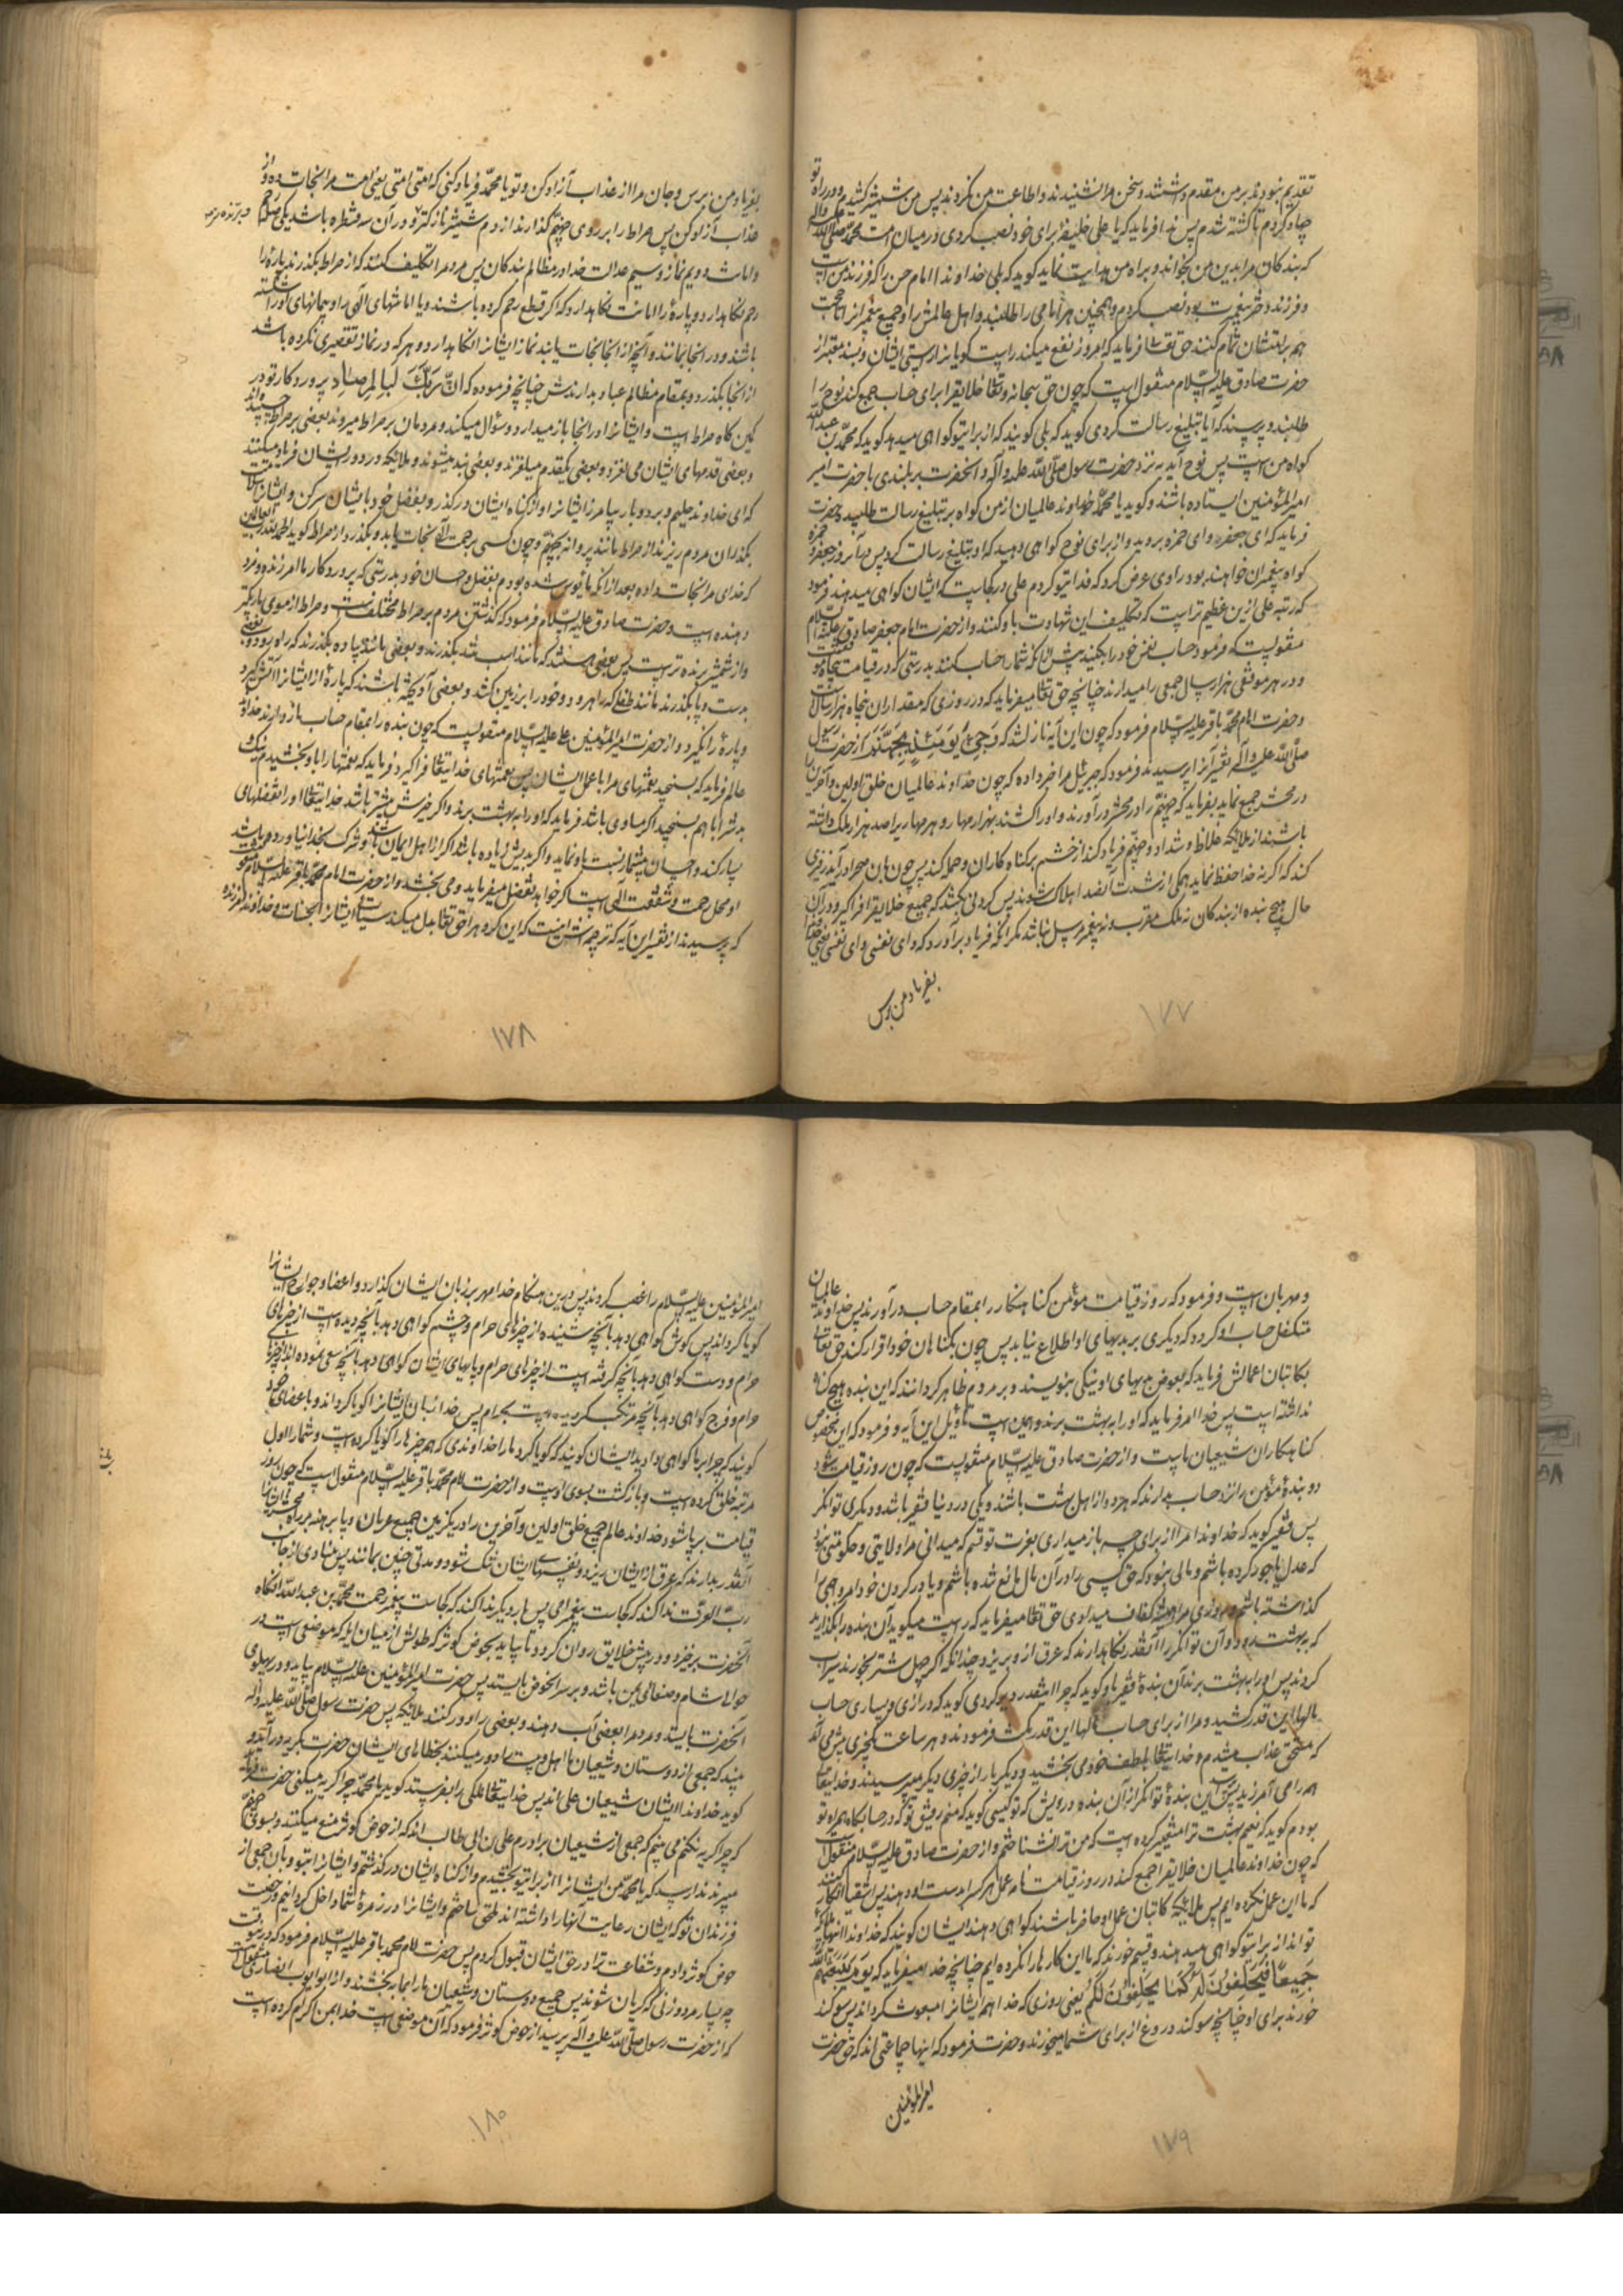 تقدیم نمودند بر من مقدم داشتند و سخن مرا نشنیدند و اطاعت من نکردند پس من شمشیر کشیدم و در راه تو
جهاد کردم تا کشته شدم پس ندا فرماید که یا علی خلیفه برای خود نصب کردی در میان امت محمد صلی الله علیه و آله
که بندکان مرا بدین من بخواند و براه من هدایت نماید کوید که بلی خداوندا امام حسن را که فرزند من است
و فرزند دختر پیغمبرت بود نصب کردم و همچنین هر امامی را طلبند و اهل عالمش را و جمیع پیغمبرانرا تا حجت
هم بر امتشان تمام کنند حق تعالی فرماید که امروز نفع میکند راست کویانرا راستی ایشان و بسند معتبر از
حضرت صادق علیه السلام منقول است که چون حق سبحانه و تعالی خلایقرا برای حساب جمع کند نوح را
طلبند و پرسند که آیا تبلیغ رسالت کردی کوید که بلی کویند که از برای تو کواهی میدهد کوید که محمد بن عبد الله
کواه من است پس نوح آید به نزد حضرت رسول صلی الله علیه و آله و آنحضرت بر بلندی با حضرت امیر
امیر المؤمنین ایستاده باشند و کوید یا محمد خداوند عالمیان از من کواه بر تبلیغ رسالت طلبیده حضرت
فرماید که ای جعفر و ای حمزه بروید و از برای نوح کواهی دهید که او تبلیغ رسالت کرد پس در آنروز جعفر و حمزه
کواه پیغمبران خواهند بود راوی عرض کرد که فدای تو کردم علی در کجاست که ایشان کواهی میدهند فرمود
که رتبه علی ازین عظیم تر است که تکلیف این شهادت باو کنند و از حضرت امام جعفر صادق علیه السلام
منقولست که فرمود حساب نفس خود را بکنید پیش از آنکه شما را حساب کنند بدرستی که در قیامت پنجاه موقفست
و در هر موقفی هزار سال جمعی را میدارند چنانچه حق تعالی میفرماید که در روزی که مقدار ان پنجاه هزار سالست
و حضرت امام محمد باقر علیه السلام فرمود که چون این آیه نازل شد که وَجِیءَ یَوْمَئِذٍ بِجَهَنَّمَ از حضرت رسول
صلی الله علیه و آله تفسیر آنرا پرسیدند فرمود که جبرئیل مرا خبر داده که چون خداوند عالمیان خلق اولین و آخرین را
در محشر جمع نماید بفرماید که جهنم را در محشر درآورند و او را کشند بهزار مهار و هر مهار را صد هزار ملک داشته
باشند از ملائکه غلاظ و شداد و جهنم فریاد کند از خشم بر کناه کاران و حمله کند پس چون بان صحرا درآید زفیری
کند که اکر نه خدا حفظ نماید همکی از شدت آنصدا هلاک شوند پس کردنی بکشد که جمیع خلایقرا فرا کیرد و در آن
حال هیچ بنده از بندکان نه ملک مقرب و نه پیغمبر مرسل نباشد مکر آنکه فریاد برآورد که وای نفسی وای نفسی یعنی خدایا
بفریاد من برس
۱۷۷
بفریاد من برس و جان مرا از عذاب آزاد کن و تو یا محمد فریاد کنی که امتی امتی یعنی امت مرا نجات ده و از
عذاب آزاد کن پس صراط را بر روی جهنم کذارند از دم شمشیر نازکتر و در آن سه قنطره باشد یکی صله رحم
و امانت و دویم نماز و سیم عدالت خدا و مظالم بندکان پس مردم را تکلیف کنند که از صراط بکذرند پارهٔ را
رحم نکاهدارد و پارهٔ را امانت نکاهدارد که اکر قطع رحم کرده باشند و یا امانتهای الهی را و پیمانهای او را شکسته
باشند و در انجا بمانند و آنچه از انجا نجات یابند نماز ایشانرا نکاهدارد و هر که در نماز تقصیری نکرده باشد
از انجا بکذرد و بمقام مظالم عباد بدارندش چنانچه فرموده که اِنَّ رَبَّکَ لَبِالمِرصاد پروردکار تو در
کمین کاه صراط است و ایشانرا در انجا باز میدارد و سؤال میکند و مردمان بر صراط میروند بعضی بر صراط چسپیده اند
و بعضی قدمهای ایشان می لغزد و بعضی یکقدم میلغزند و بعضی بند میشوند و ملائکه در دور ایشان فریاد میکنند
که ای خداوند حلیم و بردبار بیامرز ایشانرا و از کناه ایشان درکذر و بفضل خود با ایشان سر کن و ایشانرا بسلامت
بکذران مردم ریزند از صراط مانند پروانه بجهنم و چون کسی برحمت آله نجات یابد و بکذرد از صراط کوید الحمد لله رب العالمین
که خدای مرا نجات داده بعد از انکه مأیوس شده بودم بفضل و احسان خود بدرستی که پروردکار ما امرزنده و مزد
دهنده است و حضرت صادق علیه السلام فرمود که کذشتن مردم بر صراط مختلف است و صراط از موی باریکتر
و از شمشیر برنده تر است پس بعضی هستند که مانند اسب تند بکذرند و بعضی مانند پیاده بکذرند که راه رود و بعضی
بدست و پا بکذرند مانند طفلی که راه رود و خود را بر زمین کشد و بعضی آویخته باشند که پارهٔ از ایشانرا آتش کیرد
و پارهٔ را نکیرد و از حضرت امیر المؤمنین علیه السلام منقولست که چون بنده را بمقام حساب باز دارند خداوند
عالم فرماید که بسنجید نعمتهای مرا با عمل ایشان پس نعمتهای خدایتعالی فرا کیرد فرماید که نعمتها را باو بخشیدم نیک و
بدش را با هم بسنجید اکر مساوی باشد فرماید که او را به بهشت برند و اکر خیرش بیشتر باشد خدایتعالی او را تفضلهای
بسیار کند و احسان بیشمار نسبت باو نماید و اکر بدیش زیاده باشد اکر از اهل ایمان باشد و شرک بخدا نیاورده باشد
او محل رحمت و شفقت الهی است اکر خواهد تفضل میفرماید و می بخشد و از حضرت امام محمد باقر علیه السلام منقولست
که پرسیدند از تفسیر این آیه که ترجمه اش اینست که این کروه را حق تعالی بدل میکند سیئات ایشانرا بحسنات و خداوند امرزنده
۱۷۸
و مهربان است و فرمود که روز قیامت مؤمن کناهکار را بمقام حساب درآورند پس خداوند عالمیان
متکفل حساب او کردد که دیکری بر بدیهای او اطلاع نیابد پس چون بکناهان خود اقرار کند حق تعالی
بکاتبان اعمالش فرماید که بعوض بدیهای او نیکی بنویسند و بر مردم ظاهر کردانند که این بنده هیچ کناه
نداشته است پس خدا امر فرماید که او را به بهشت برند و همین است تأویل این آیه و فرمود که این مخصوص
کناهکاران شیعیان ماست و از حضرت صادق علیه السلام منقولست که چون روز قیامت شود
دو بندهٔ مؤمن را نزد حساب بدارند که هر دو از اهل بهشت باشند و یکی در دنیا فقیر باشد و دیکری توانکر
پس فقیر کوید که خداوندا مرا از برای چه باز میداری بعزت تو قسم که میدانی مرا ولایتی و حکومتی نبود
که عدل یا جور کرده باشم و مالی نبود که حق کسی را در آن مال مانع شده باشم و یا در کردن خود امر واجبی را
کذاشته باشم و روزی مرا همیشه کفاف میدادی حق تعالی میفرماید که راست میکوید آن بنده را بکذارید
که به بهشت رود و آن توانکر را آنقدر نکاهدارند که عرق از او بریزد چندانکه اکر چهل شتر بخورند سیراب
کردند پس او را به بهشت برند آن بندهٔ فقیر باو کوید که چرا اینقدر دیر کردی کوید که درازی و بسیاری حساب
مالها این قدر کشید و مرا از برای حساب مالها این قدر مکث فرمودند و هر ساعت یکچیزی پیش می آمد
که مستحق عذاب میشدم و خدایتعالی بلطف خود می بخشید و دیکر بار از چیزی دیکر میپرسیدند و خدایتعالی
همه را می آمرزید پس این بندهٔ توانکر از آن بندهٔ درویش که تو کیستی کوید که منم رفیق تو که در حسابکاه همراه تو
بودم کوید که نعیم بهشت ترا متغیر کرده است که من ترا نشناختم و از حضرت صادق علیه السلام منقولست
که چون خداوند عالمیان خلایقرا جمع کند در روز قیامت نامهٔ عمل هر کس را بدست او دهند پس اشقیا انکار کنند
که ما این عمل نکرده ایم پس ملائکه کاتبان عمل او حاضر باشند کواهی دهند ایشان کویند که خداوندا اینها ملائکه
تواند از برای تو کواهی میدهند و قسم خورند که ما این کارها را نکرده ایم چنانچه خدا میفرماید که یَوْمَ یَبْعَثُهُمُ اللّٰه
جَمِیعًا فَیَحْلِفُونَ لَهُ کَمَا یَحْلِفُونَ لَکُمْ یعنی روزی که خدا همه ایشانرا مبعوث کرداند پس سوکند
خورند برای او چنانچه سوکند دروغ از برای شما میخورند و حضرت فرمود که اینها جماعتی اند که حق حضرت
امیر المؤمنین
۱۷۹
امیر المؤمنین علیه السلام را غصب کردند پس درین هنکام خدا مهر بر زبان ایشان کذارد و اعضا و جوارح ایشانرا
کویا کرداند پس کوش کواهی دهد بآنچه شنیده از چیزهای حرام و چشم کواهی دهد بآنچه دیده است از چیزهای
حرام و دست کواهی دهد بآنچه کرفته است از چیزهای حرام و پایهای ایشان کواهی دهد بآنچه سعی نموده اند از چیزهای
حرام و فرج کواهی دهد بآنچه مرتکب کردیده است بحرام پس خدا زبان ایشانرا کویا کرداند و با عضای خود
کویند که چرا بر ما کواهی دادید ایشان کویند که کویا کرد ما را خداوندی که همه چیزها را کویا کرده است و شما را اول
مرتبه خلق کرده است و بازکشت بسوی اوست و از حضرت امام محمد باقر علیه السلام منقول است که چون روز
قیامت برپا شود خداوند عالم جمیع خلق اولین و آخرین را در یکزمین جمیع عریان و پا برهنه بر راه محشر ایشانرا
آنقدر بدارند که عرق از ایشان بریزد و نفسهای ایشان تنک شود و مدتی چنین بمانند پس منادی از جانب
رب العزت ندا کند که کجاست پیغمبر امی پس بار دیکر ندا کند که کجاست پیغمبر رحمت محمد بن عبد الله آنکاه
آنحضرت برخیزد و در پیش خلایق روان کردد تا بیاید بحوض کوثر که طولش از میان ایله که موضعی است در
حوالی شام و صنعای یمن باشد و بر سر آنحوض بایستد پس حضرت امیر المؤمنین علیه السلام بیاید و در پهلوی
آنحضرت بایستد و مردم را بعضی آب دهند و بعضی را دور کنند ملائکه پس حضرت رسول صلی الله علیه و آله
بیند که جمعی از دوستان و شیعیان ما اهل بیت را دور میکنند بخطاهای ایشان حضرت بکریه درآید و
کوید خداوندا ایشان شیعیان علی اند پس خدایتعالی ملکی را بفرستد کوید یا محمد چرا کریه میکنی حضرت فرماید
که چرا کریه نکنم می بینم که جمعی از شیعیان برادرم علی بن ابی طالب اند که از حوض کوثر منع میکنند و بسوی جهنم
میبرند ندا رسد که یا محمد من ایشانرا از برای تو بخشیدم و از کناه ایشان درکذشتم و ایشانرا بتو و بآن جمعی از
فرزندان تو که ایشان رعایت آنها را داشته اند ملحق ساختم و ایشانرا در زمرهٔ شما داخل کردانیدم و رخصت
حوض کوثر دادم و شفاعت ترا در حق ایشان قبول کردم پس حضرت امام محمد باقر علیه السلام فرمود که در آنوقت
چه بسیار مرد و زنی که کریان شوند پس جمیع دوستان و شیعیان ما را بما به بخشند و از ابو ایوب انصاری منقولست
که از حضرت رسول صلی الله علیه و آله پرسید از حوض کوثر فرمود که آن موضعی است خدا بمن کرام کرده است
۱۸۰